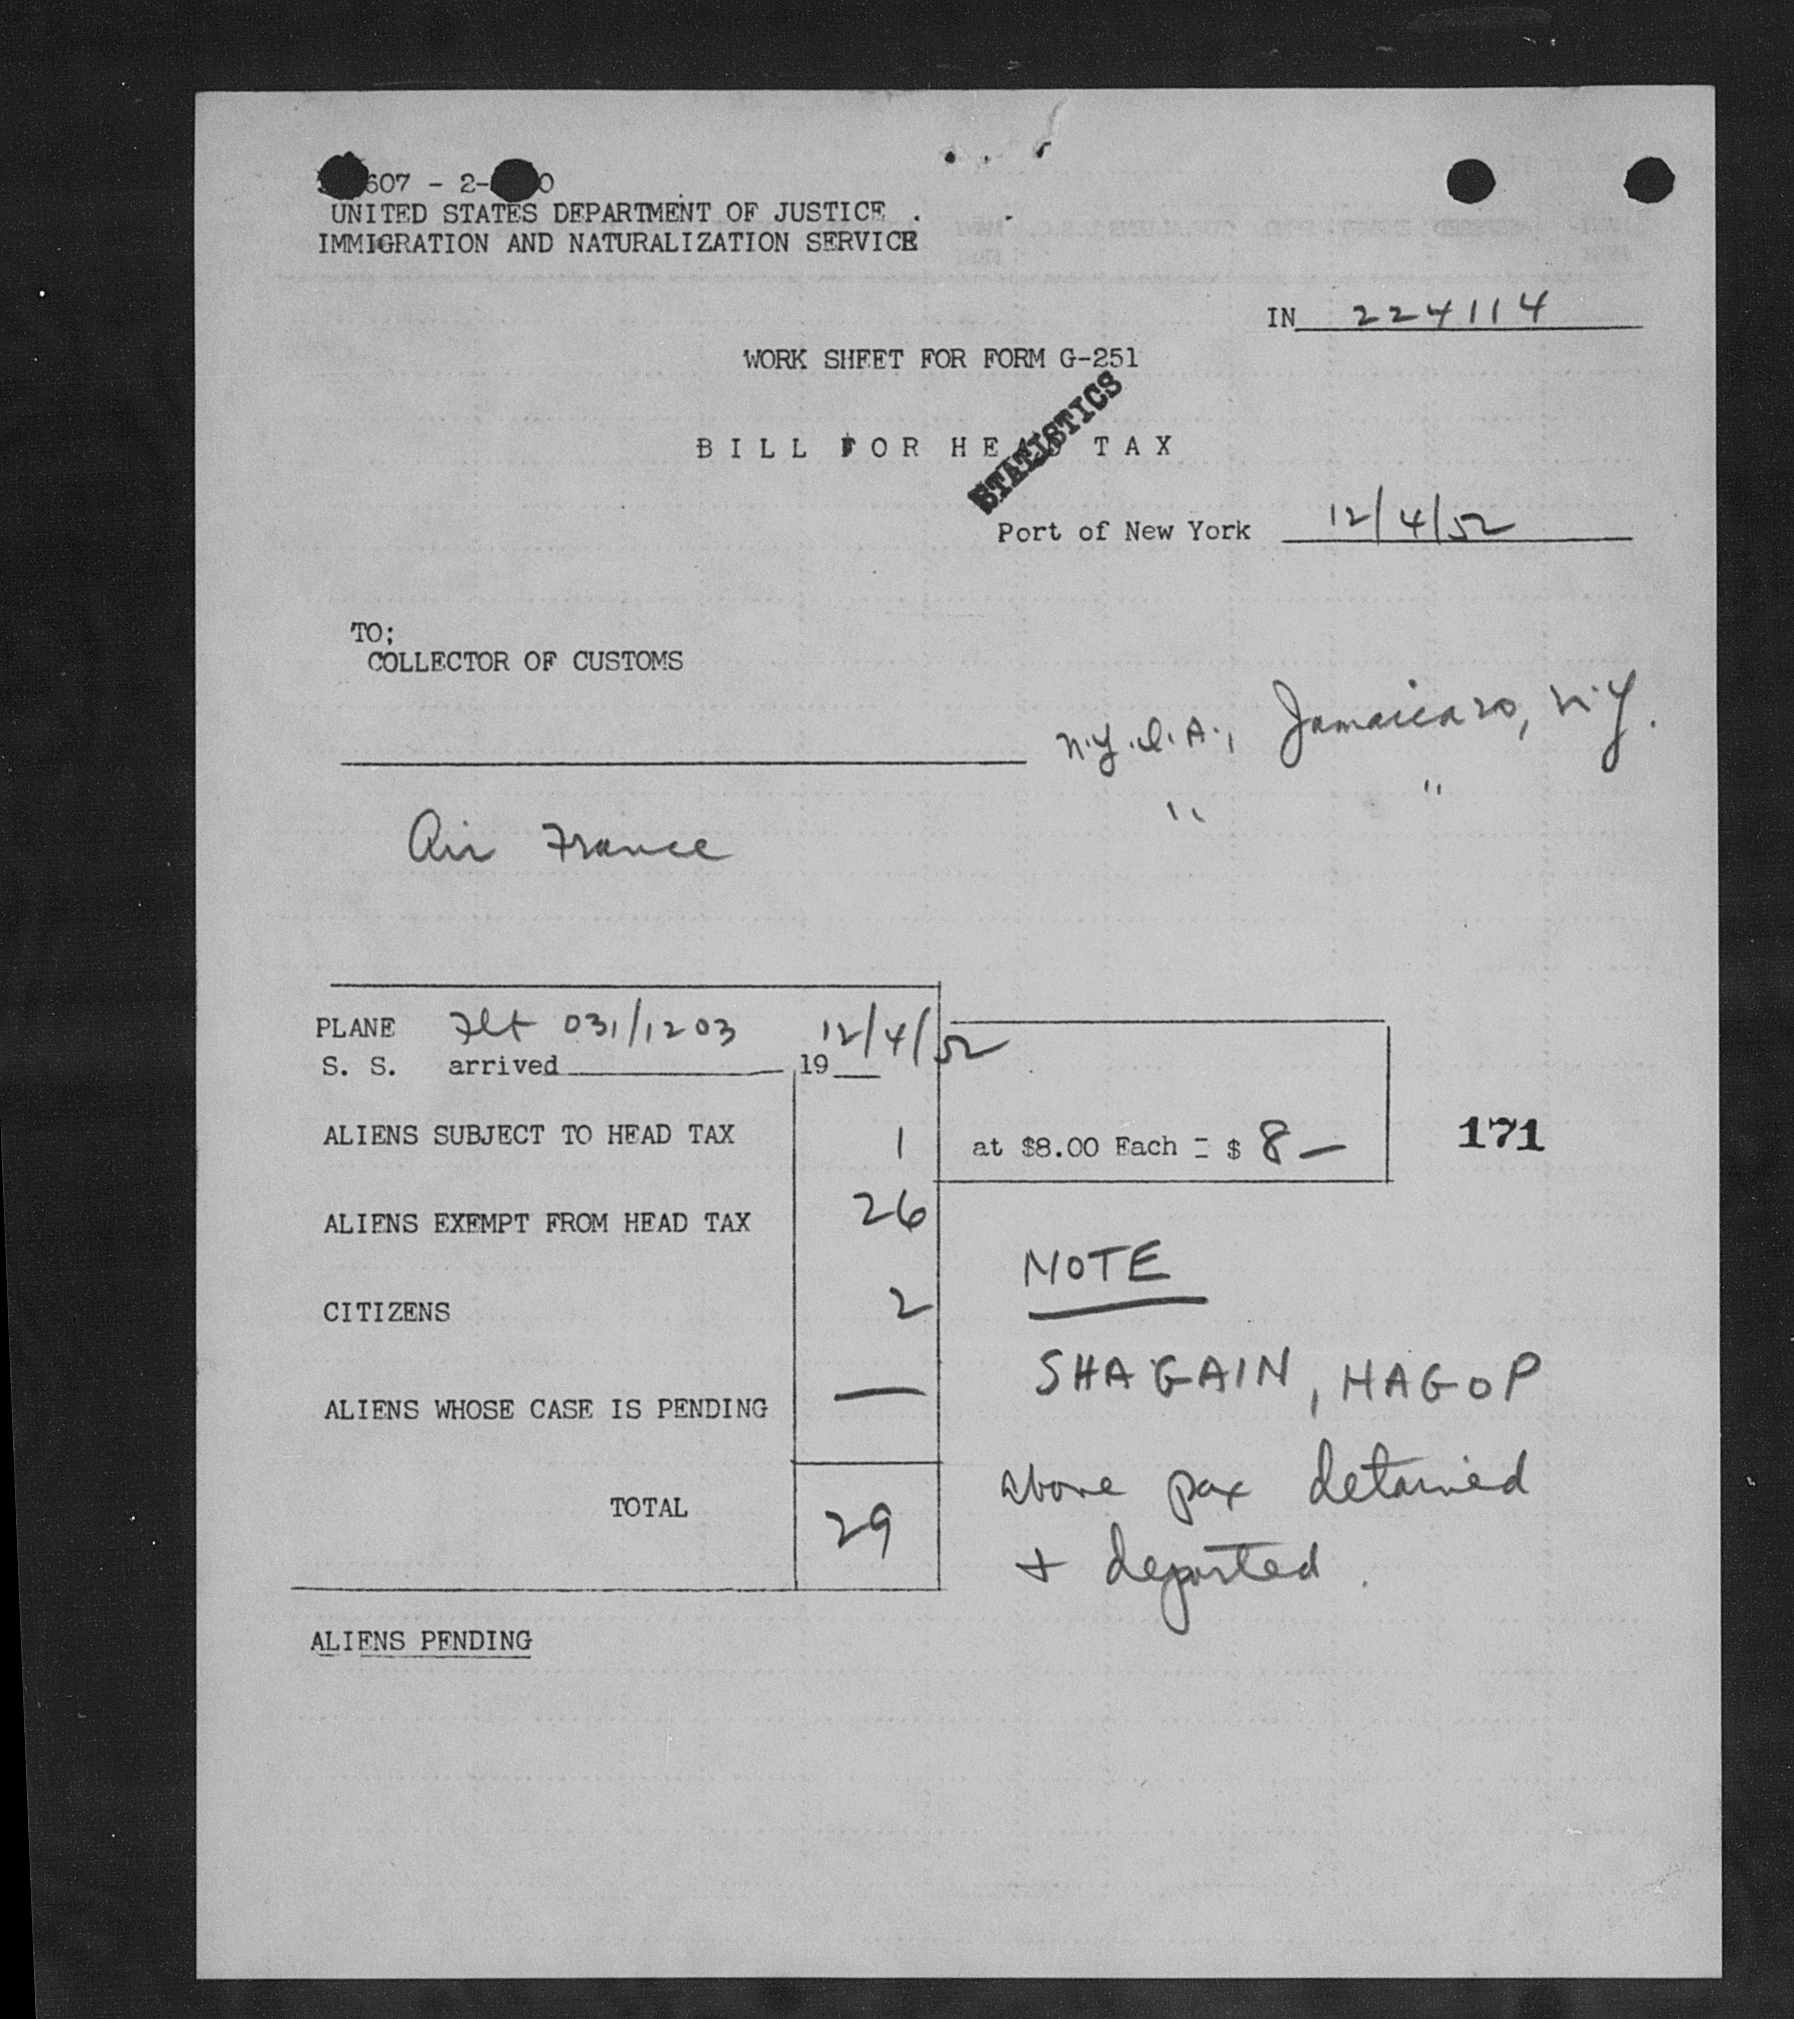 607 - 2- 0
UNITED STATES DEPARTMENT OF JUSTICE
IMMIGRATION AND NATURALIZATION SERVICE
IN 224114
WORK SHEET FOR FORM G-251
STATISTICS
BILL FOR HEAD TAX
Port of New York 12/4/52
TO;
COLLECTOR OF CUSTOMS
N.Y.I.A., Jamaica 20, N.Y.
" "
Air France
PLANE Flt 031/1203 12/4/52
S. S. arrived 19
ALIENS SUBJECT TO HEAD TAX 1 at $8.00 Each = $ 8— 171
ALIENS EXEMPT FROM HEAD TAX 26
NOTE
CITIZENS 2
SHAGAIN, HAGOP
ALIENS WHOSE CASE IS PENDING —
above pax detained
TOTAL 29
+ deported.
ALIENS PENDING